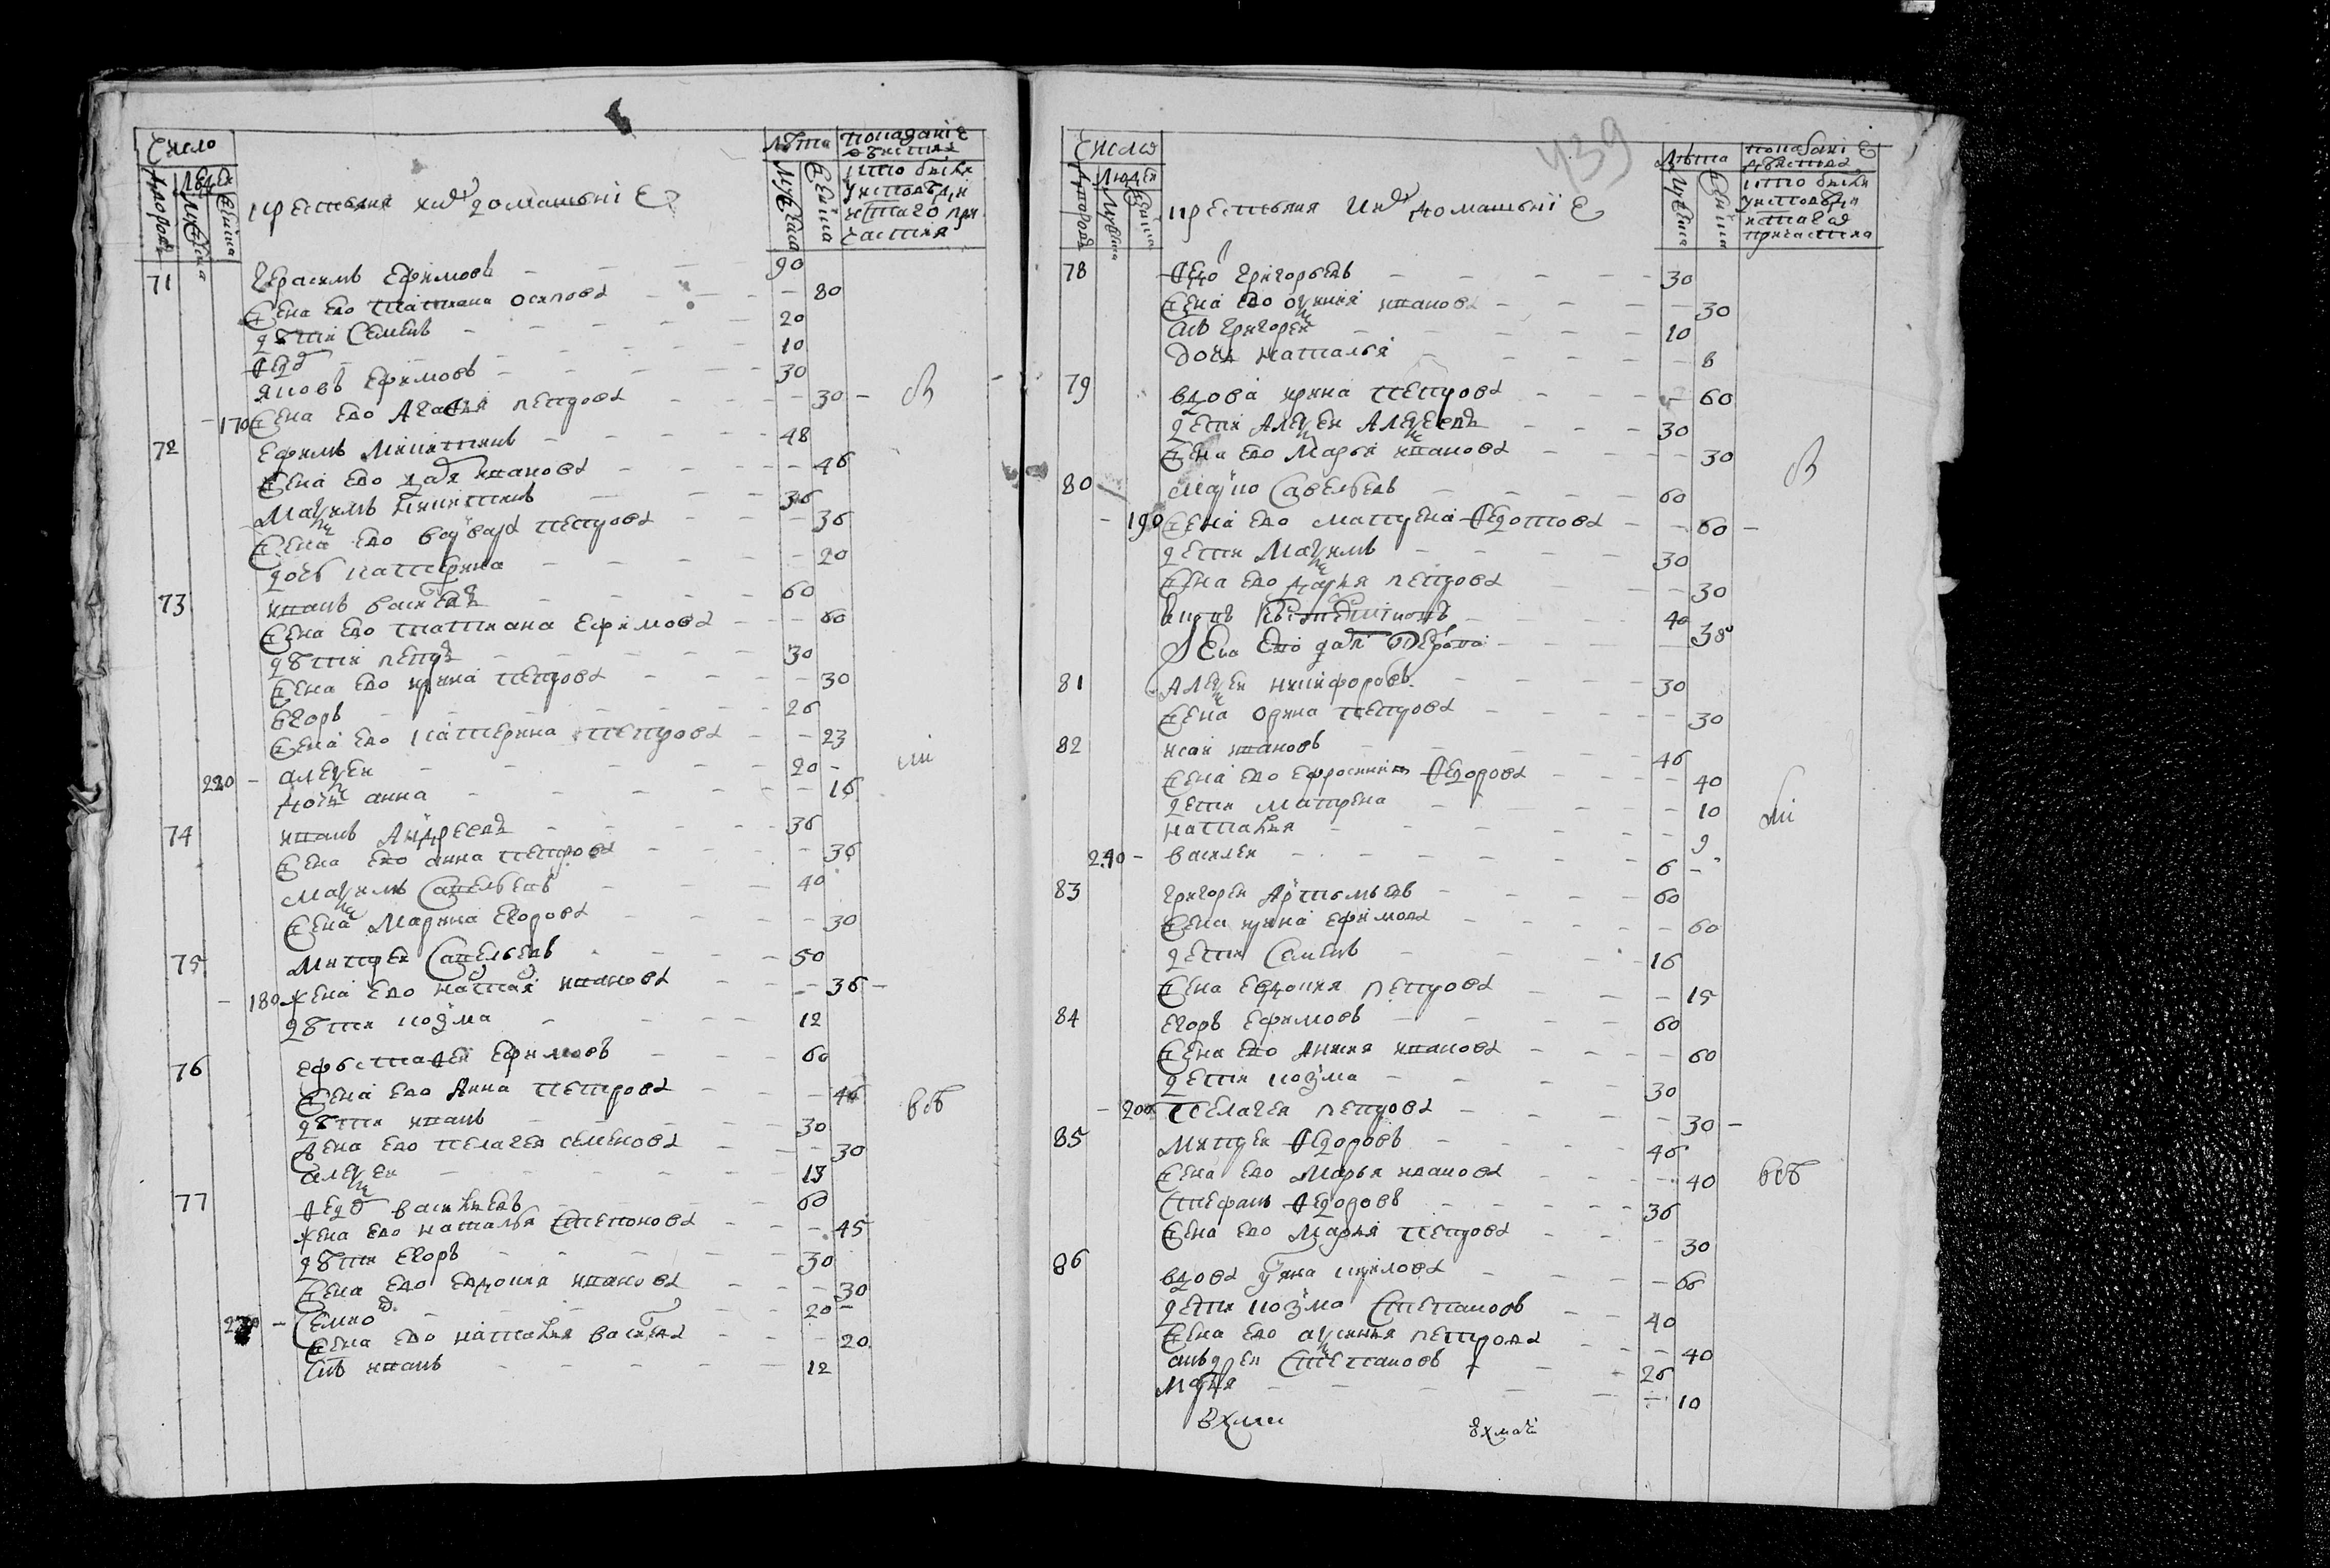 Число
Лѣта
показаніе
дѣйства
дворовъ
людей
мужеска
женска
крестьяня и ихъ домашніе
мужеска
женска
кто были
у исповѣди
и с҃таго при
частия
71 Герасимъ Ефимовъ 90
жена ево Татияна Осипова 80
дѣти Семенъ 20
Федо 10
Яковъ Ефимовъ 30
170 жена ево Агафия Петрова 30
72 Ефимъ Микитинъ 48
жена ево Иванова 46
Максимъ Никитинъ 36
жена ево Варвара Петрова 36
дочь Катерина 20
73 Иванъ Васильевъ 60
жена ево Татияна Ефимова 60
дѣти Петръ 30
жена ево Ирина Петрова 30
Егоръ 26
жена ево Катерина Петрова 23
220 Алексѣи 20
дочь Анна 16
74 Иванъ Андреевъ 36
жена ево Анна Петрова 36
Максимъ Савельевъ 40
жена Марина Егорова 30
75 Митреи Савельевъ 50
180 жена ево Наталя Иванова 36
дѣти Козма 12
76 Ефстафеи Ефимовъ 60
жена ево Анна Петрова 46
дѣти Иванъ 30
жена ево Пелагея Семенова 30
Алексеи 13
77 Федо Васильевъ 60
жена ево Наталья Степонова 45
дѣти Егоръ 30
жена ево Евдокия Иванова 30
230 Семио 20
жена ево Наталья Васильева 20
сн҃ъ Иванъ 12
всѣ
439
Число
Лѣта
показаніе
дѣйства
дворовъ
людеи
мужеска
женска
крестьяня и ихъ домашніе
мужеска
женска
кто были
у исповѣди
и с҃таго
причастия
78 Федо Григорьевъ 30
жена ево Иванова 30
сн҃ъ Григореи 10
дочь Наталья 8
79 вдова Ирина Петрова 60
дети Алексеи Алексеевъ 30
жена ево Марья Иванова 30
80 Марко Савельевъ 60
190 жена ево Матрена Федотова 60
дети Максимъ 30
жена ево Дарья Петрова 30
40
жена ево 38
81 Алексеи Никифоровъ 30
жена Орина Петрова 30
82 Исаи Ивановъ 46
жена ево Ефросиния Федорова 40
дети Матрена 10
Наталья 9
240 Василеи 6
83 Григореи Артемьевъ 60
жена Ирина Ефимова 60
дети Семенъ 16
жена Евдокия Петрова 15
84 Егоръ Ефимовъ 60
жена ево Анния Иванова 60
дети Козма 30
200 Пелагея Петрова 30
85 Митреи Федоровъ 46
жена ево Марья Иванова 40
Стефанъ Федоровъ 36
жена ево Марья Петрова 30
86 вдова Кирилова 66
дети Козма Степановъ 40
жена ево Аксинья Петрова 40
Андреи Степановъ 26
Марья 10
всѣ